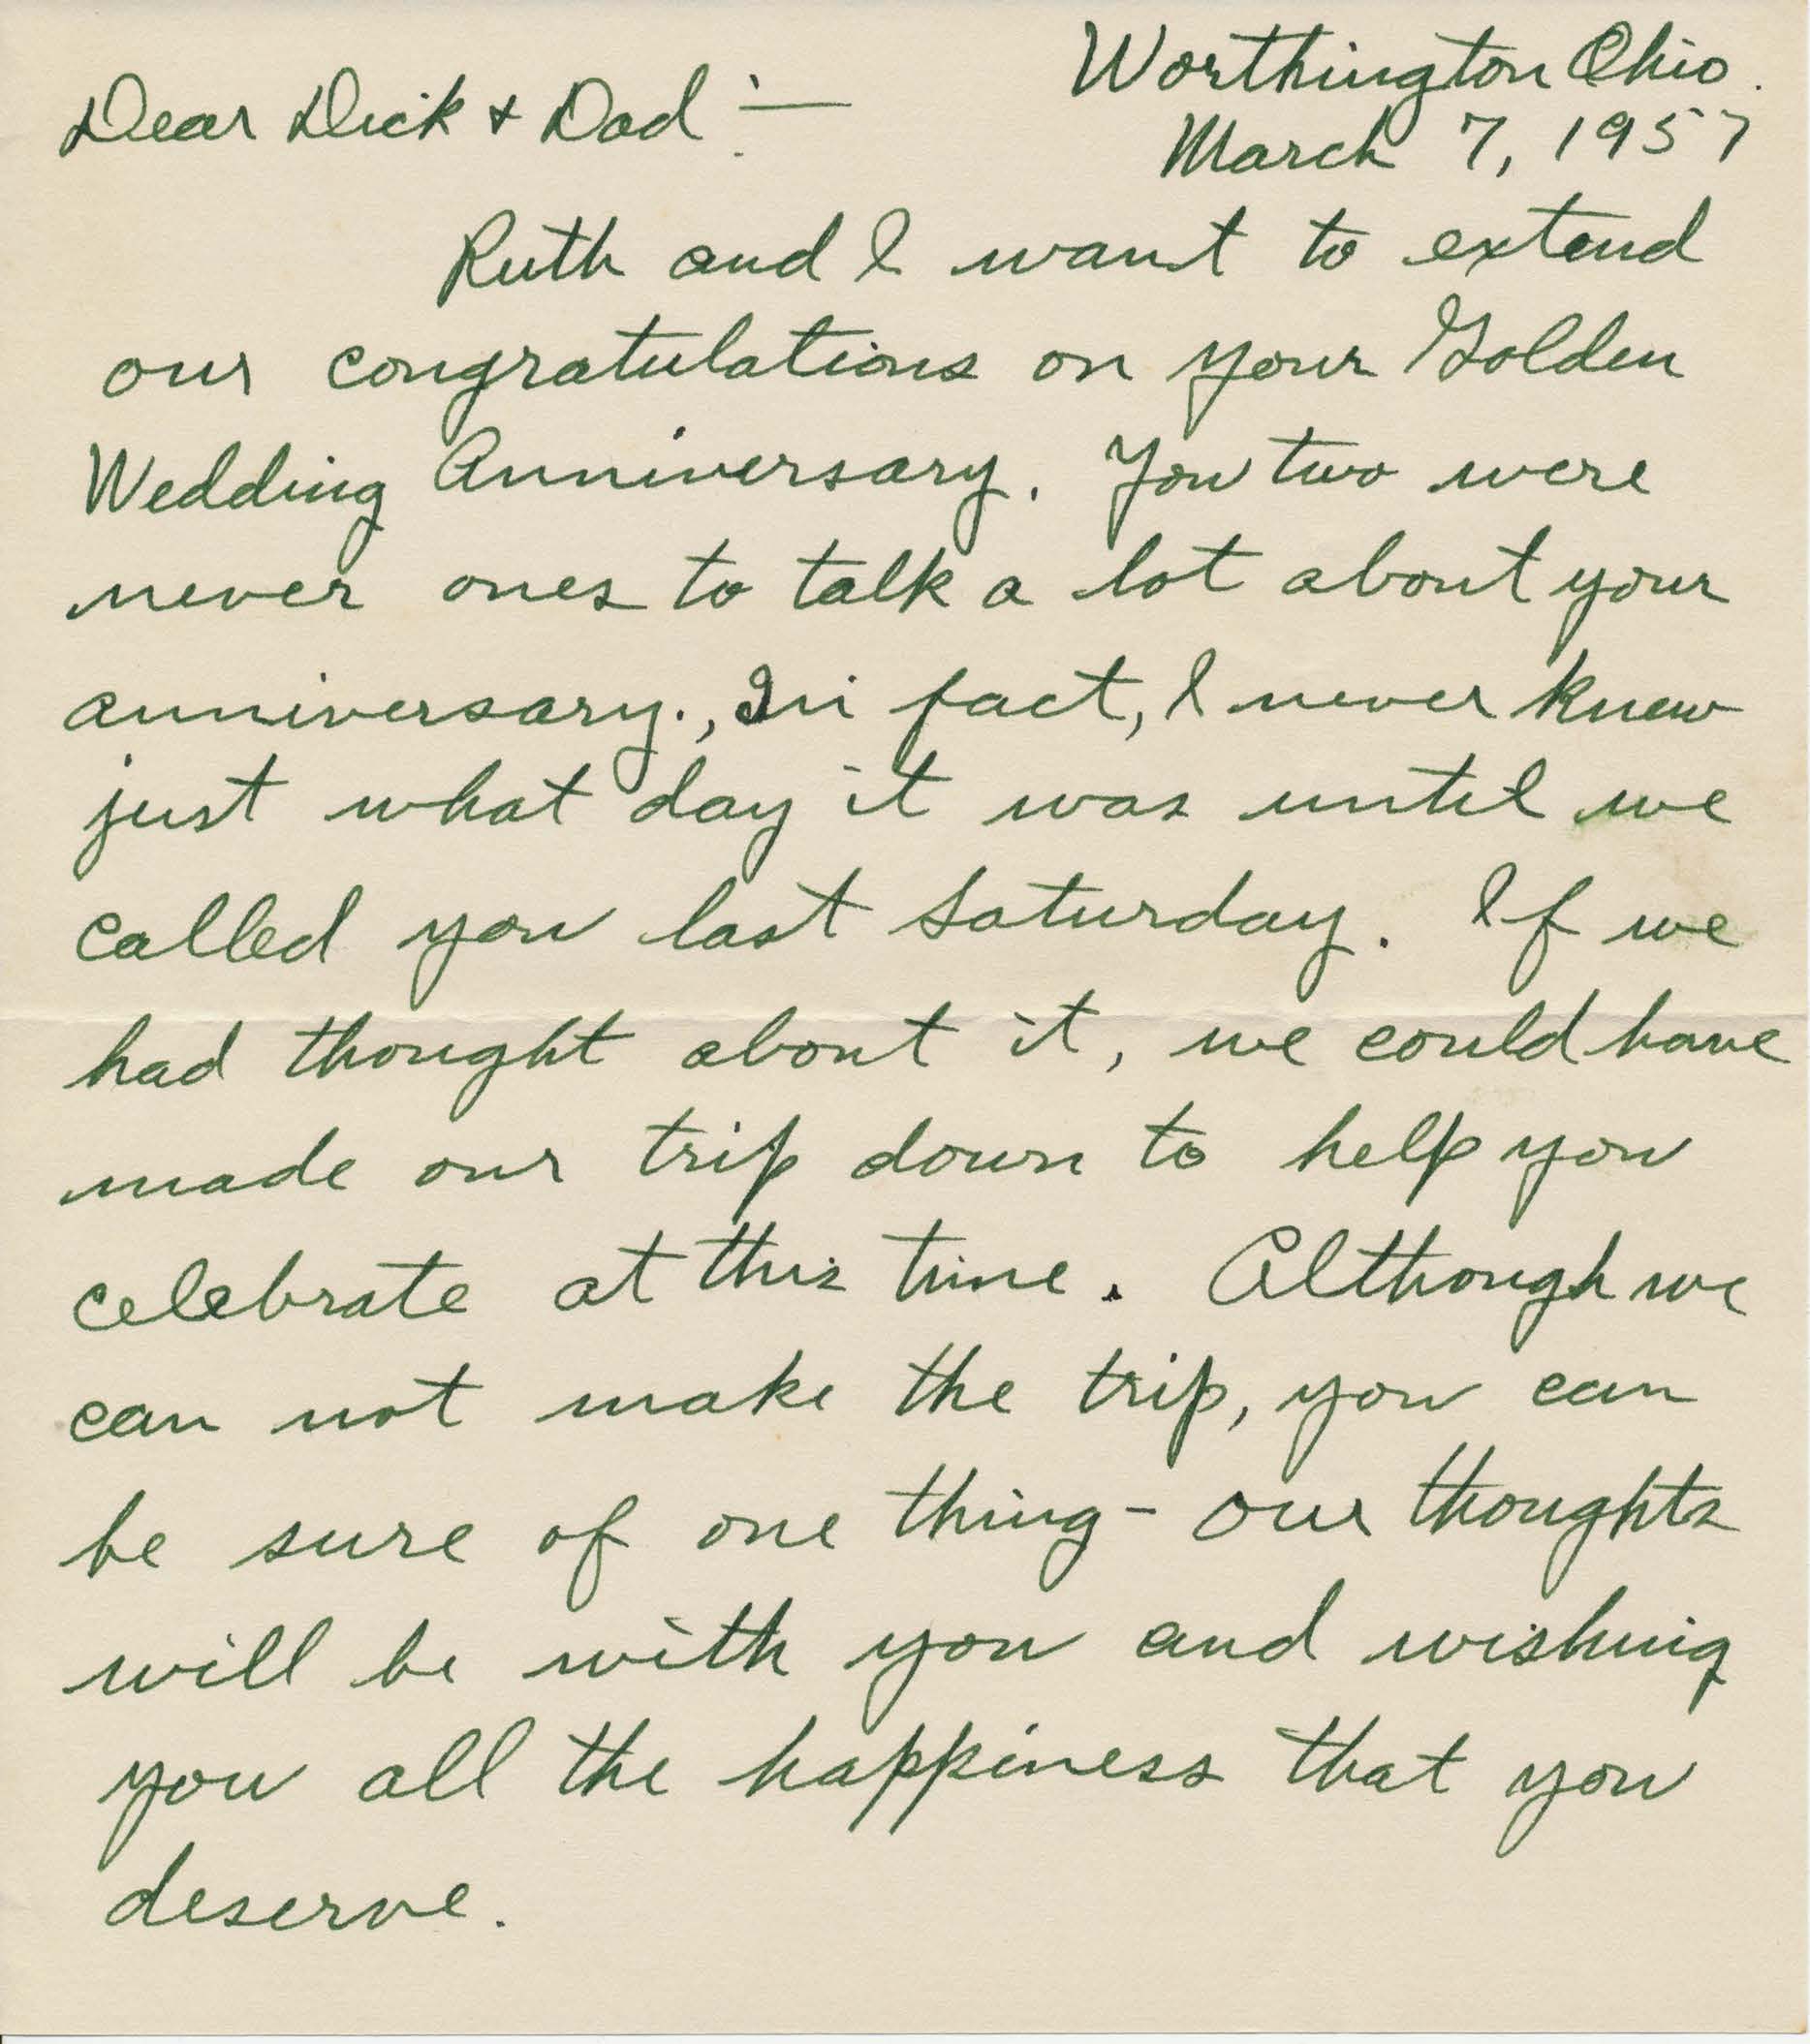 Worthington Ohio.
Dear Dick & Dad :—
March 7, 1957
Ruth and I want to extend
our congratulations on your Golden
Wedding Anniversary. You two were
never ones to talk a lot about your
anniversary., In fact, I never knew
just what day it was until we
called you last Saturday. If we
had thought about it, we could have
made our trip down to help you
celebrate at this time. Although we
can not make the trip, you can
be sure of one thing - our thoughts
will be with you and wishing
you all the happiness that you
deserve.